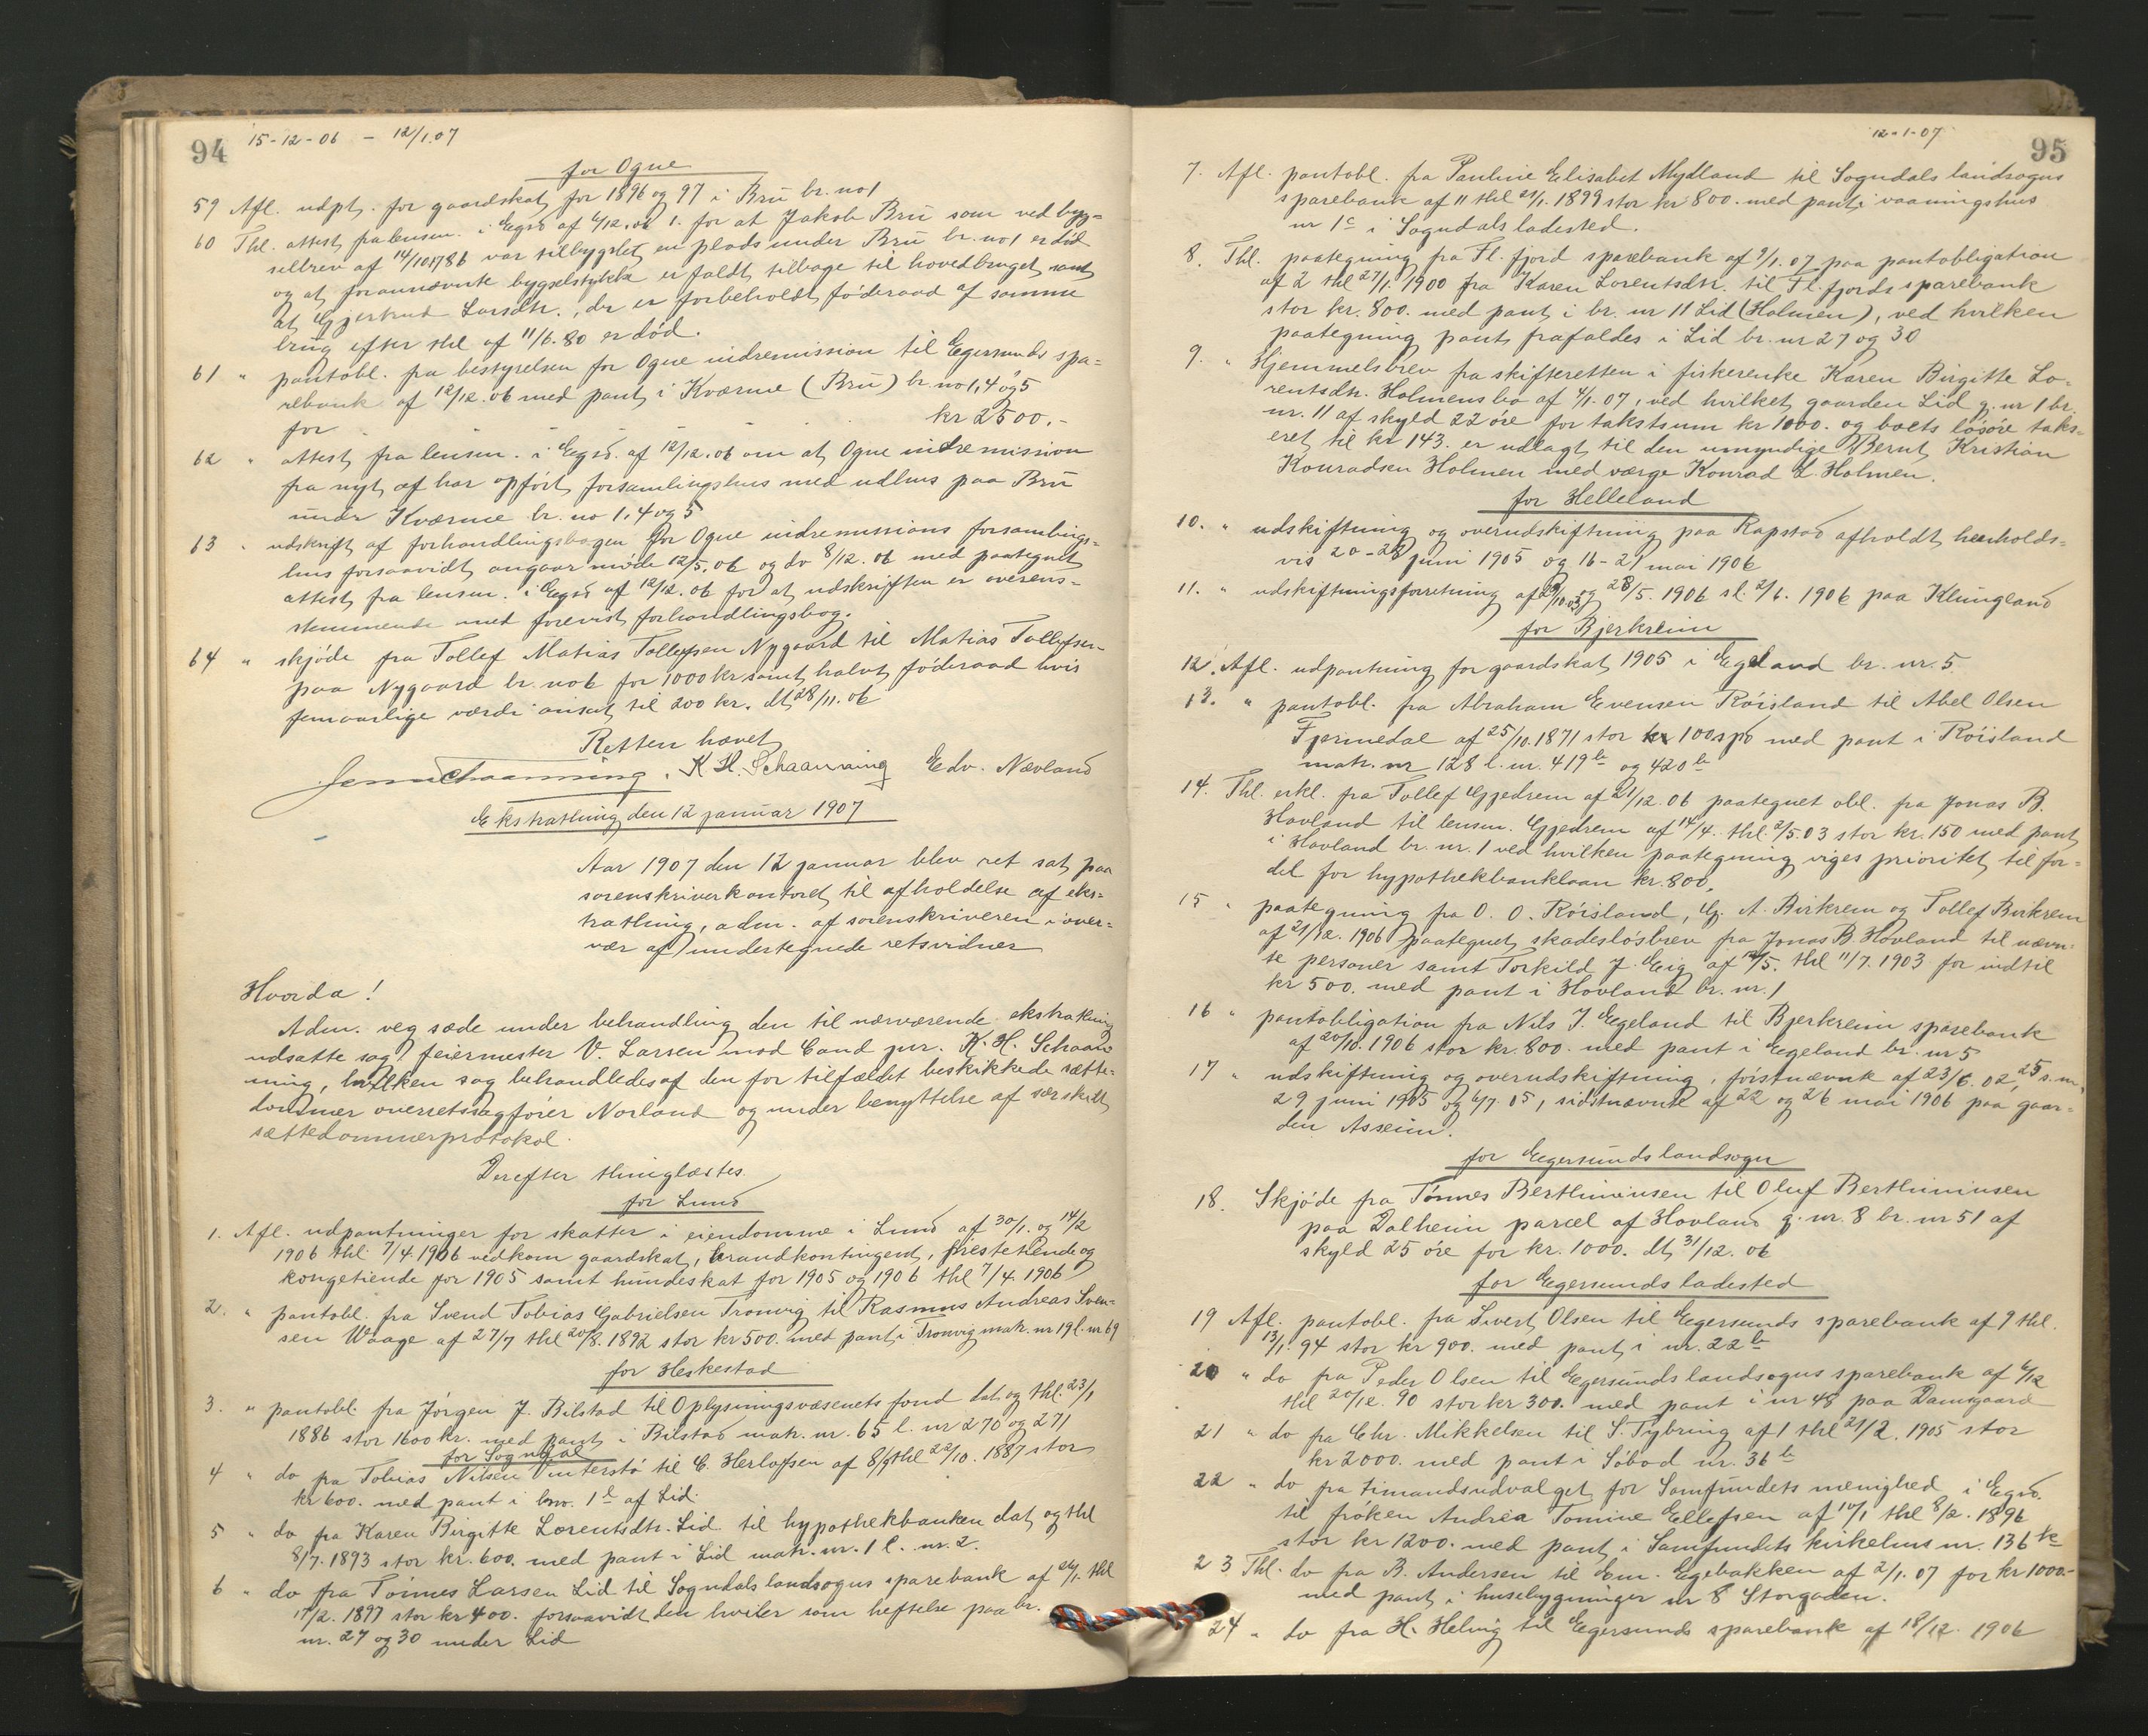 94 15-12-06 - 12/1.07
for Ogne
59 Afl. udpt. for gaardskat for 1896 og 97 i Bru br. no 1
60 Thl. attest fra lensm. i Egrs. af 6/12.06 1. for at Jakob Bru som ved byg=
selbrev af 14/10.1786 var tilbygslet en plads under Bru br. no 1 er död
og at forannævnte bygselstykke er faldt tilbage til hovedbruget samt
at Gjertrud Larsdtr., der er forbeholdt föderaad af samme
brug efter thl af 11/6.80 er död.
61 " pantobl. fra bestyrelsen for Ogne indremission til Egersunds spa=
rebank af 12/12.06 med pant i Kværme (Bru) br. no 1, 4 og 5
for kr 2500.-
62 " attest fra lensm. i Egrsd. af 12/12.06 om at Ogne indremission
fra nyt af har opfört forsamlingshus med udhus paa Bru
under Kværme br. no 1, 4 og 5
63 " udskrift af forhandlingsbogen for Ogne indremissions forsamlings=
hus forsaavidt angaar möde 12/5.06 og do 8/12.06 med paategnet
attest fra lensm. i Egrsd af 12/12.06 for at udskriften er overens=
stemmende med forevist forhandlingsbog.
64 " skjöde fra Tollef Matias Tollefsen Nygaard til Matias Tollefsen
paa Nygaard br. no 6 for 1000 kr samt halvt föderaad hvis
femaarlige værdi ansat til 200 kr. dt 28/11.06
Retten hævet
K H. Schaanning Edv. Nævland
Ekstrathing den 12 januar 1907
Aar 1907 den 12 januar blev ret sat paa
sorenskriverkontoret til afholdelse af eks=
trathing, adm. af sorenskriveren i over=
vær af undertegnede retsvidner
Hvorda!
Adm. veg sæde under behandling den til nærværende ekstrathing
udsatte sag: feiermester V. Larsen mod Cand jur. K. H. Schaan
ning, hvilken sag behandledes af den for tilfældet beskikkede sætte=
dommer overretssagförer Norland og under benyttelse af særskilt
sættedommerprotokol.
Derefter thinglæstes
for Lund
1. Afl. udpantninger for skatter i eiendomme i Lund af 30/1. og 14/2
1906 thl 7/4.1906 vedkom gaardskat, brandkontingent, prestetiende og
kongetiende for 1905 samt hundeskat for 1905 og 1906 thl 7/4.1906
2. " pantobl. fra Svend Tobias Gabrielsen Tronvig til Rasmus Andreas Sven=
sen Waage af 27/7 thl 20/8.1892 stor kr 500. med pant i Tronvig matr. nr 19 l. nr 69
for Heskestad
3. " pantobl. fra Jörgen J. Bilstad til Oplysningsvæsenets fond dat og thl. 23/1
1886 stor 1600 kr. med pant i Bilstad matr. nr. 65 l. nr 270 og 271
for Sogndal
4 " do fra Tobias Nilsen Vinterstö til C. Herlofsen af 8/9 thl 22/10.1887 stor
kr 600. med pant i br. 1 d af Lid.
5 " do fra Karen Birgitte Lorentsdtr. Lid til hypothekbanken dat og thl
8/7.1893 stor kr. 600. med pant i Lid matr. nr. 1 l. nr. 2.
6 " do fra Tönnes Larsen Lid til Sogndals landsogns sparebank af 26/1. thl
17/2.1897 stor kr 400. forsaavidt den hviler som heftelse paa br.
nr. 27 og 30 under Lid
12-1-07 95
7. Afl. pantobl. fra Pauline Elisabet Mydland til Sogndals landsogns
sparebank af 11 thl 21/1.1899 stor kr 800. med pant i vaaningshus
nr 1 c i Sogndals ladested.
8. Thl. paategning fra Fl. fjord sparebank af 9/1.07 paa pantobligation
af 2 thl 27/1 1900 fra Karen Lorentsdtr. til Fl. fjords sparebank
stor kr. 800. med pant i br. nr 11 Lid (Holmen), ved hvilken
paategning pant frafaldes i Lid br. nr 27 og 30
9. " Hjemmelsbrev fra skifteretten i fiskerenke Karen Birgitte Lo=
rentsdtr. Holmens bo af 4/1.07, ved hvilket gaarden Lid g. nr 1 br.
nr. 11 af skyld 22 öre for takstsum kr 1000. og boets lösöre taks=
eret til kr 143. er udlagt til den umyndige Bernt Kristian
Konradsen Holmen med værge Konrad L. Holmen.
for Helleland
10. " udskiftning og overudskiftning paa Rapstad afholdt henholds=
vis 20-28 juni 1905 og 16-21 mai 1906
11. " udskiftningsforretning af og 28/5.1906 sl. 2/6.1906 paa Klungland
for Bjerkreim
12. Afl. udpantning for gaardskat 1905 i Egeland br. nr. 5
13. " pantobl. fra Abraham Evensen Röisland til Abel Olsen
Fjermedal af 25/10.1871 stor 100 spd med pant i Röisland
matr. nr 128 l. nr. 419 b og 420 b
14. Thl. erkl. fra Tollef Gjedrem af 21/12.06 paategnet obl. fra Jonas B.
Hovland til lensm. Gjedrem af 14/4. thl. 2/5.03 stor kr. 150 med pant
i Hovland br. nr. 1 ved hvilken paategning viges prioritet til for=
del for hypothekbanklaan kr. 800.
15 " paategning fra O. O. Röisland, G. A. Birkrem og Tollef Birkrem
af 21/12.1906 paategnet skadeslösbrev fra Jonas B. Hovland til nævn=
te personer samt Torkild J. Eeig af 14/5. thl 11/7.1903 for indtil
kr 500. med pant i Hovland br. nr. 1
16 " pantobligation fra Nils J. Egeland til Bjerkreim sparebank
af 20/10.1906 stor kr. 800. med pant i Egeland br. nr 5
17 " udskiftning og overudskiftning, förstnævnte af 23/6.02, 25 s. m,
29 juni 1905 og 6/7 05, sidstnævnte af 22 og 26 mai 1906 paa gaar=
den Asseim.
for Egersunds landsogn
18. Skjöde fra Tönnes Berthiniusen til Oluf Berthiniusen
paa Dalheim parcel af Hovland g. nr. 8 br. nr 51 af
skyld 25 öre for kr. 1000. dt 31/12.06
for Egersunds ladested
19 Afl. pantobl. fra Sivert Olsen til Egersunds sparebank af 9 thl.
13/1.94 stor kr 900. med pant i nr. 22 b
20 " do fra Peder Olsen til Egersunds landsogns sparebank af 6/12
thl 20/12.90 stor kr 300. med pant i nr 48 paa Damsgaard
21 " do fra Chr. Mikkelsen til S. Tybring af 1 thl 21/2.1905 stor
kr 2000. med pant i Söbod nr. 36 b
22 " do fra timandsudvalget for Samfundets menighed i Egrsd.
til fröken Andrea Tomine Ellefsen af 10/1 thl 8/2.1896
stor kr 1200. med pant i Samfundets kirkehus nr. 136
23 Thl. do fra B. Andersen til Em. Egebakken af 2/1.07 for kr 1000.-
med pant i husebygninger nr 8 Storgaden.
24 " do fra H. Helvig til Egersunds sparebank af 18/12.1906